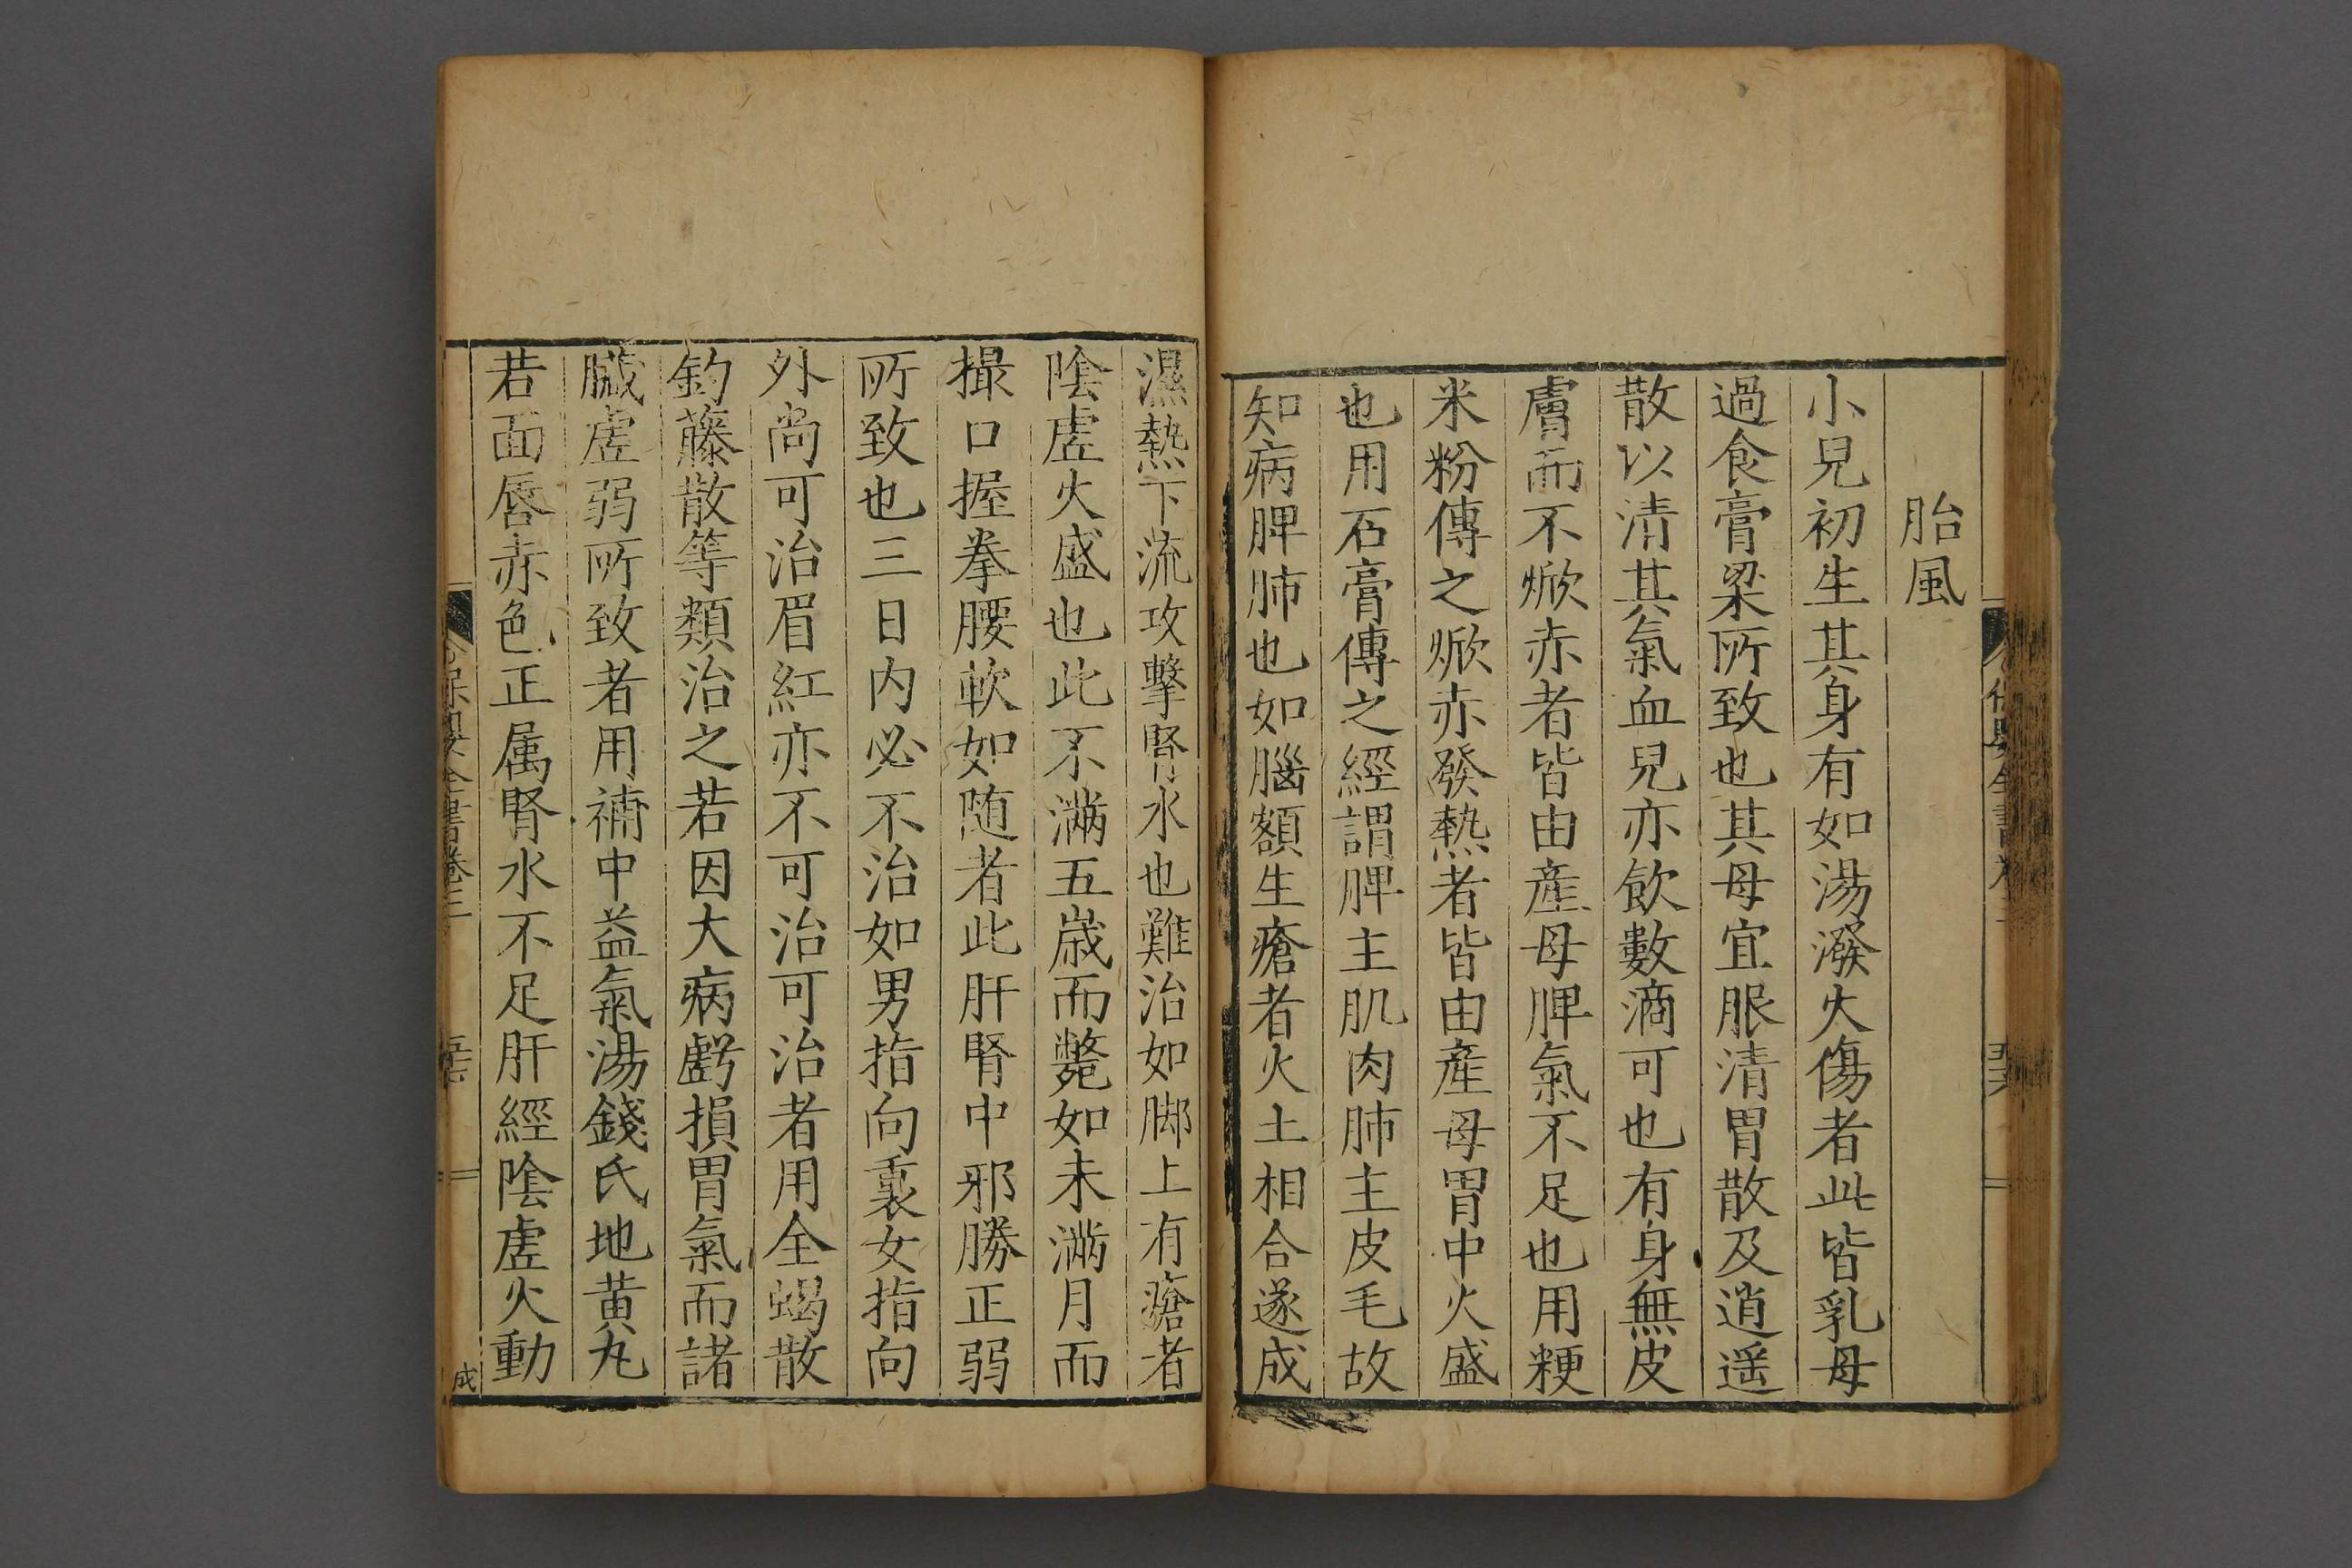 胎風
小兒初生其身有如湯潑火傷者此皆乳母
過食膏粱所致也其母宜服清胃散及逍遥
散以清其氣血兒亦飲數滴可也有身無皮
膚而不焮赤者皆由產母脾氣不足也用粳
米粉傳之焮赤發熱者皆由產母胃中火盛
也用石膏傳之經謂脾主肌肉肺主皮毛故
知病脾肺也如腦額生瘡者火土相合遂成
濕熱下流攻擊腎水也難治如脚上有瘡者
陰虛火盛也此不滿五歲而斃如未滿月而
撮口握拳腰軟如随者此肝腎中邪勝正弱
所致也三日内必不治如男指向裏女指向
外尚可治眉紅亦不可治可治者用全蝎散
釣藤散等類治之若因大病虧損胃氣而諸
臟虛弱所致者用補中益氣湯錢氏地黄丸
若面唇赤色正属腎水不足肝經陰虛火動
保嬰全書卷三
成